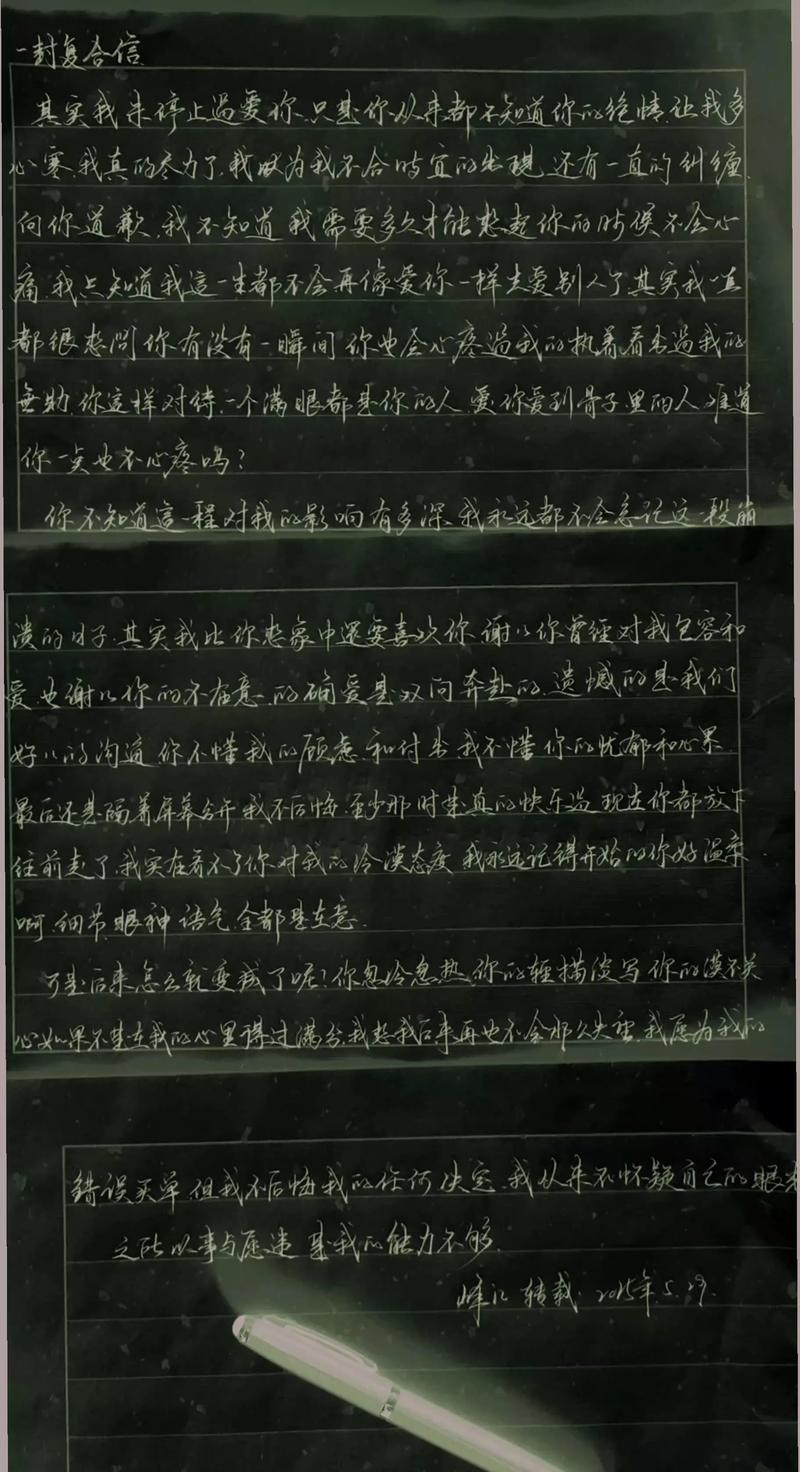 一封复合信
其实我未停止過愛你.只是你从来都不知道你的绝情.让我多
心寒.我真的尽力了.我因为我不合时宜的出現.还有一直的纠缠.
向你道歉.我不知道我需要多久才能想起你的时候不会心
痛.我只知道我這一生都不会再像爱你一样去爱别人了.其实我一直
都很想問你有没有一瞬间你也会心疼過我的执着看出過我的
無助.你這样对待一个满眼都是你的人.爱你爱到骨子里的人难道
你一点也不心疼吗?
你不知道這一程对我的影响有多深.我永远都不会忘记这一段崩
溃的日子.其实我比你想象中還要喜欢你.谢谢你曾经对我包容和
爱.也谢谢你的不在意.的确爱是双向奔赴的.遗憾的是我们
好好的沟通你不懂我的顾虑和付出.我不懂你的忧郁和心累.
最后还是隔着屏幕分开我不后悔.至少那时是真的快乐過.现在你都放下
往前走了.我实在看不了你对我的冷漠态度.我永远记得开始的你好温柔
啊.细节.眼神.语气.全都是在意.
可是后来怎么就变成了呢?你忽冷忽热.你的轻描淡写.你的漠不关
心如果不是在我的心里得过满分.我想我后来再也不会那么失望.我愿为我的
错误买单.但我不后悔我的任何决定.我从来不怀疑自己的眼光
之所以事与愿违.是我的能力不够.
峰 转载. 2015年.5.29.